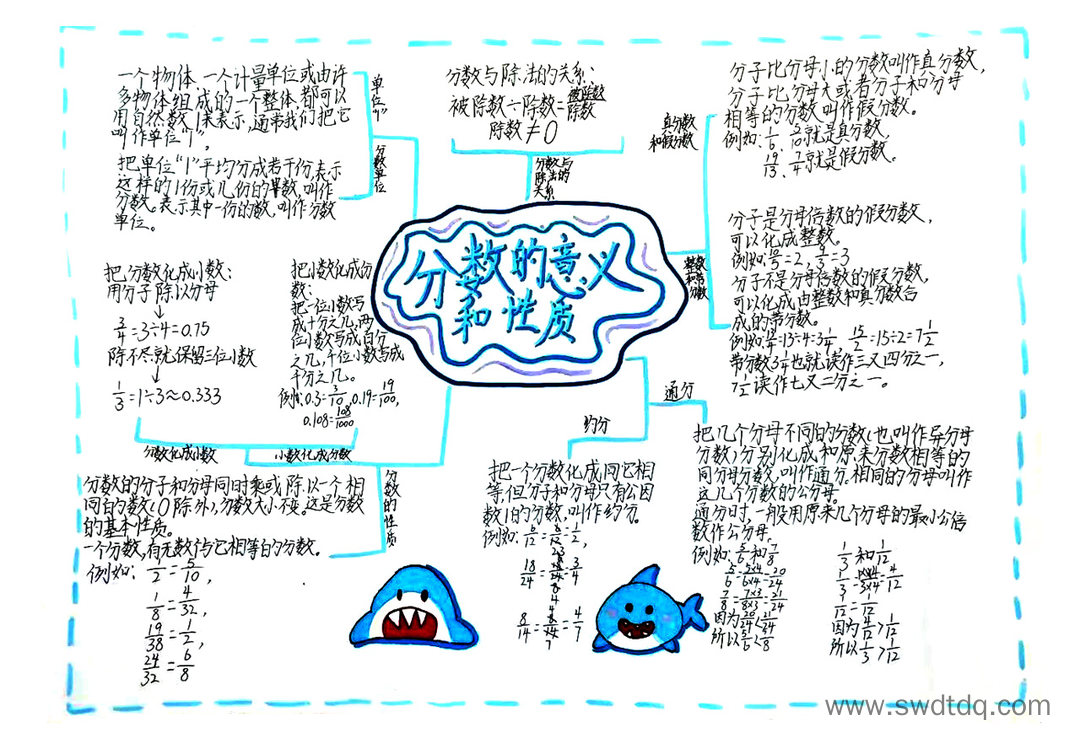 分数的意义
和性质
单位"1"
一个物体、一个计量单位或由许
多物体组成的一个整体,都可以
用自然数1来表示,通常我们把它
叫作单位"1"。
分数单位
把单位"1"平均分成若干份,表示
这样的1份或几份的数,叫作
分数。表示其中一份的数,叫作分数
单位。
分数与
除法的
关系
分数与除法的关系:
被除数÷除数=被除数/除数
除数≠0
真分数
和假分数
分子比分母小的分数叫作真分数,
分子比分母大或者分子和分母
相等的分数叫作假分数。
例如:1/6、3/10就是真分数,
19/13、7/4就是假分数。
整数
和带
分数
分子是分母倍数的假分数,
可以化成整数。
分子不是分母倍数的假分数,
可以化成由整数和真分数合
成的带分数。
15/2=15÷2=7 1/2
带分数3 1/4也就读作三又四分之一,
7 1/2读作七又二分之一。
把分数化成小数:
用分子除以分母
3/4=3÷4=0.75
除不尽就保留三位小数
1/3=1÷3≈0.333
分数化成小数
把小数化成分
数:
把一位小数写
成十分之几,两
位小数写成百分
之几,千位小数写成
千分之几。
例如:0.3=3/10,0.19=19/100,
0.108=108/1000
小数化成分数
分数的性质
分数的分子和分母同时乘或除以一个相
同的数(0除外),分数大小不变。这是分数
的基本性质。
一个分数,有无数个与它相等的分数。
例如:1/2=5/10,
1/8=4/32,
19/38=1/2,
24/32=6/8
约分
把一个分数化成同它相
等,但分子和分母只有公因
数1的分数,叫作约分。
例如:6/12=6/12=1/2,
18/24=18/24=3/4
8/14=8/14=4/7
通分
把几个分母不同的分数(也叫作异分母
分数)分别化成和原来分数相等的
同分母分数,叫作通分。相同的分母叫作
这几个分数的公分母。
通分时,一般用原来几个分母的最小公倍
数作公分母。
例如:5/6和7/8
5/6=5×4/6×4=20/24
7/8=7×3/8×3=21/24
因为20/24<21/24
所以5/6<7/8
1/3和1/12
1/3=1×4/3×4=4/12
1/12=1/12
因为4/12>1/12
所以1/3>1/12
www.swdtdq.com